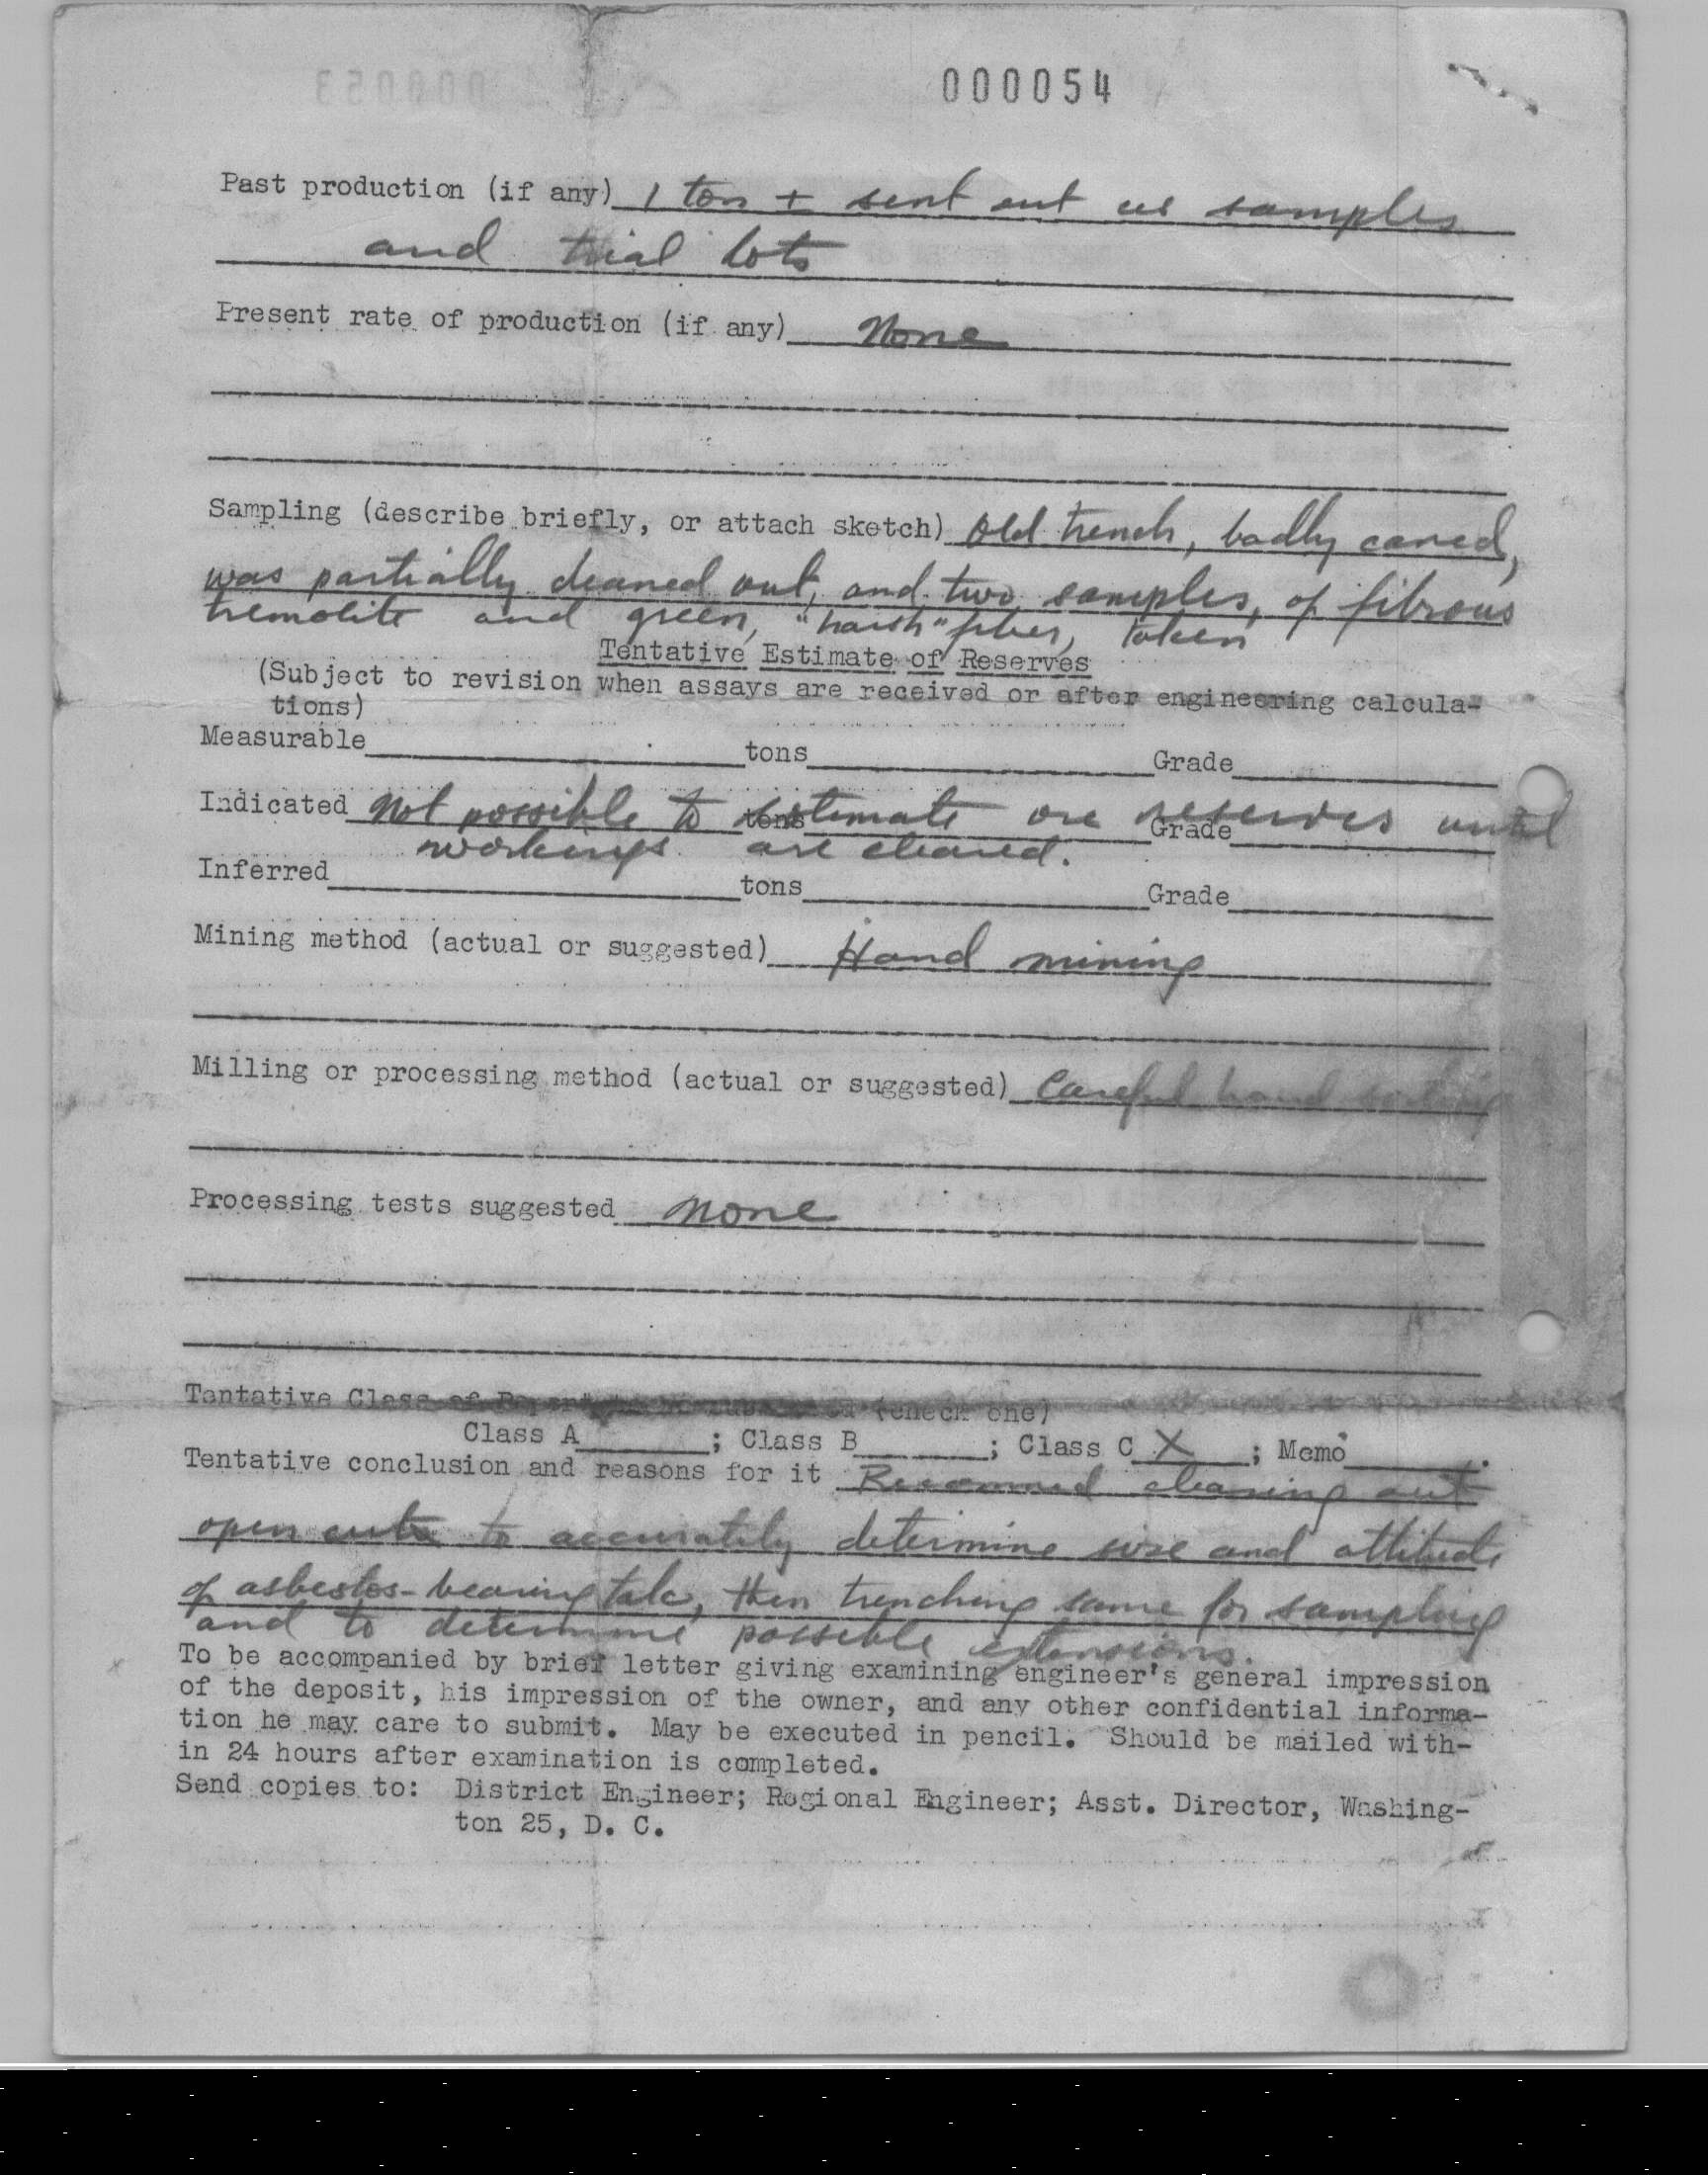 000054
Past production (if any) 1 ton + sent out as samples
and trial lots
Present rate of production (if any) None
Sampling (describe briefly, or attach sketch) Old trench, badly caved,
was partially cleaned out, and two samples, of fibrous
tremolite and green, "harsh" fiber, taken
Tentative Estimate of Reserves
(Subject to revision when assays are received or after engineering calcula-
tions)
Measurable tons Grade
Indicated Not possible to estimate ore reserves until tons Grade
workings are cleared.
Inferred tons Grade
Mining method (actual or suggested) Hand mining
Milling or processing method (actual or suggested) Careful hand sorting
Processing tests suggested None
Tentative Class of Report to be (check one)
Class A ; Class B ; Class C X ; Memo .
Tentative conclusion and reasons for it Recommed cleaning out
open cuts to accurately determine size and attitude
of asbestos-bearing talc, then trenching same for sampling
and to determine possible extensions.
To be accompanied by brief letter giving examining engineer's general impression
of the deposit, his impression of the owner, and any other confidential informa-
tion he may care to submit. May be executed in pencil. Should be mailed with-
in 24 hours after examination is completed.
Send copies to: District Engineer; Regional Engineer; Asst. Director, Washing-
ton 25, D. C.